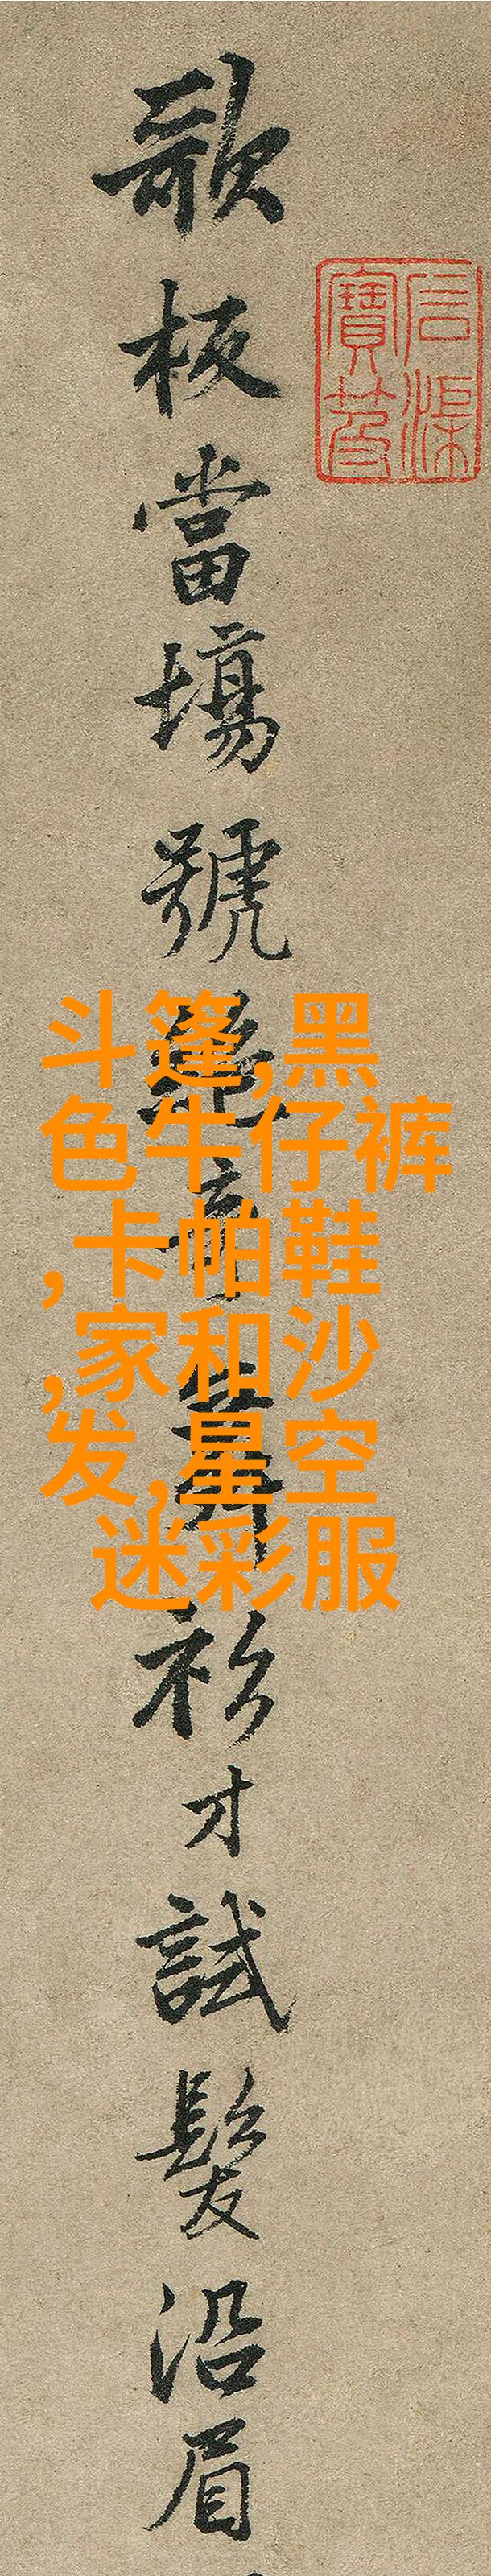 石渠
寶笈
歌板當場號衫才試髮沿眉
斗篷,黑
色牛仔裤
,卡帕鞋
,家和沙
发,星空
迷彩服